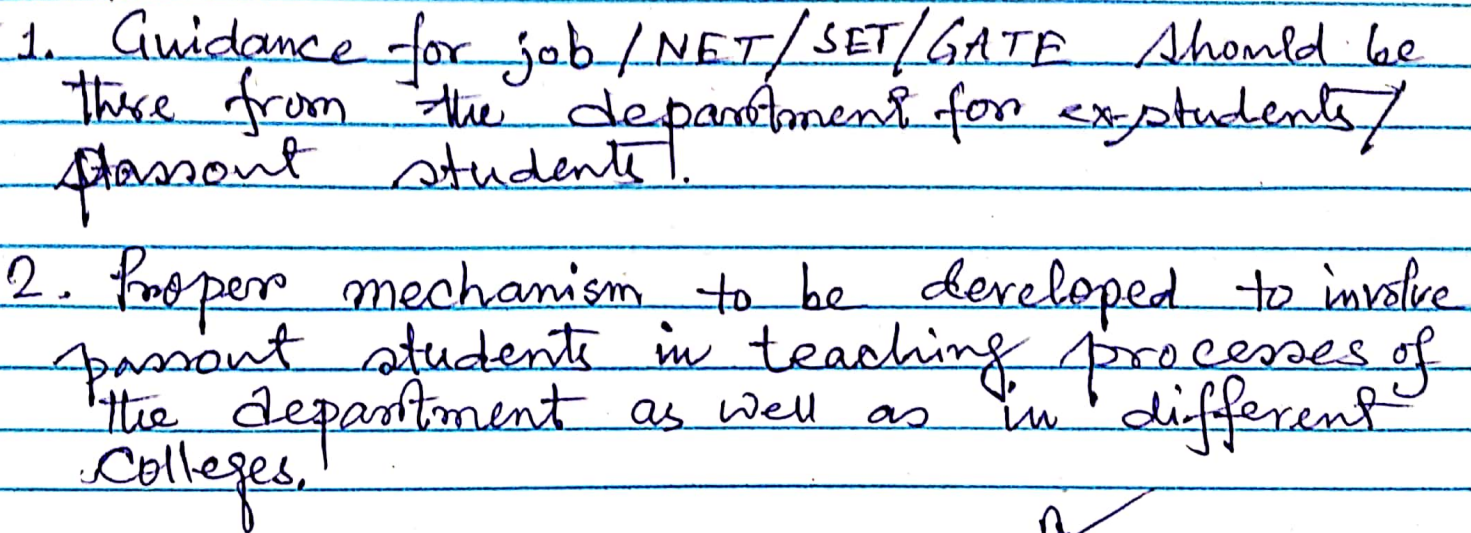 1. Guidance for job / NET / SET / GATE should be
there from the department for ex-students /
passout students.
2. Proper mechanism to be developed to involve
passout students in teaching processes of
the department as well as in different
Colleges.